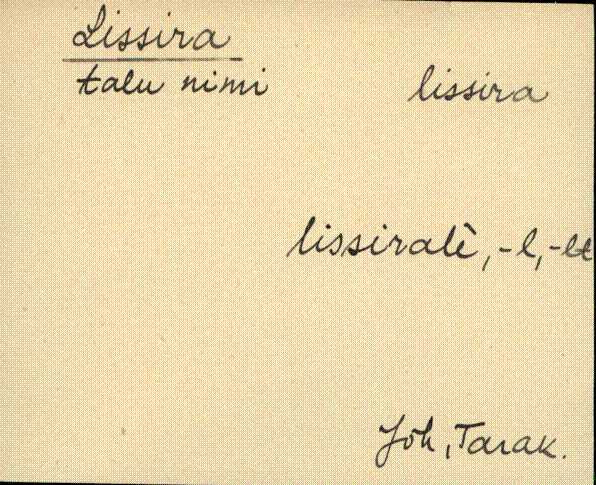 Lissira
talu nimi lissira
lissiralè, -l, -lt
Jõh, Tarak.